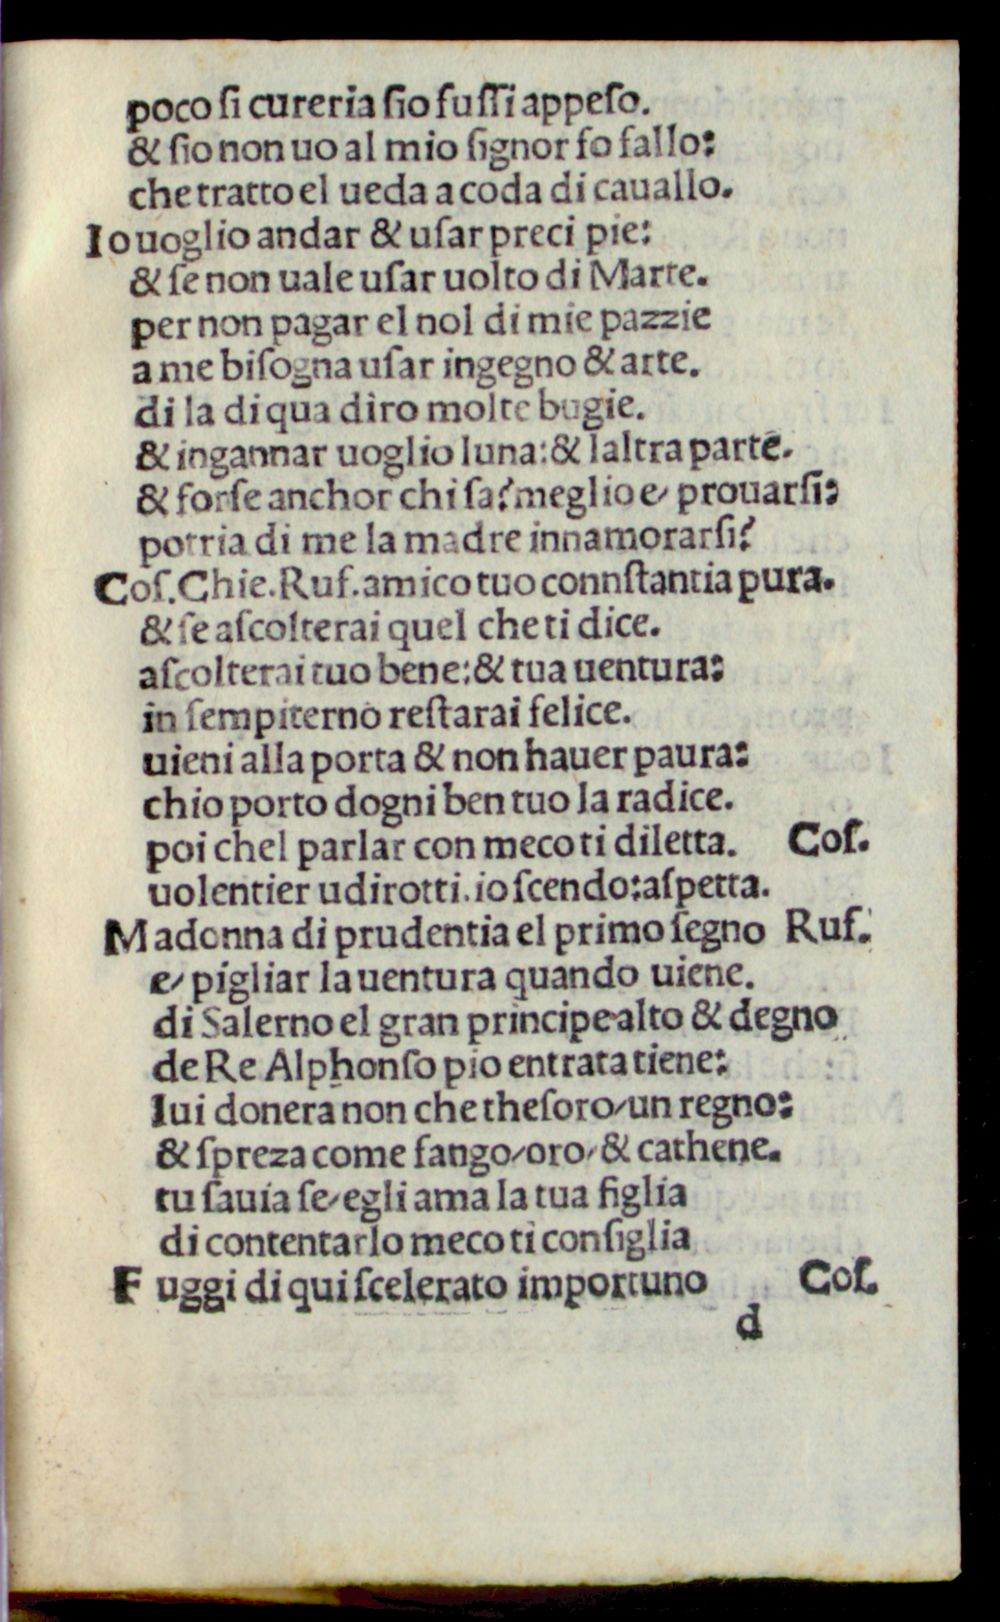 poco ſi cureria ſio fuſſi appeſo.
& ſio non uo al mio ſignor fo fallo:
che tratto el ueda a coda di cauallo.
Io uoglio andar & uſar preci pie:
& ſe non uale uſar uolto di Marte.
per non pagar el nol di mie pazzie
a me biſogna uſar ingegno & arte.
di la di qua diro molte bugie.
& ingannar uoglio luna:& laltra parte.
& forſe anchor chi ſa? meglio e/ prouarſi:
potria di me la madre innamorarſi?
Coſ. Chie. Ruſ. amico tuo connſtantia pura.
& ſe aſcolterai quel che ti dice.
aſcolterai tuo bene:& tua uentura:
in ſempiterno reſtarai felice.
uieni alla porta & non hauer paura:
chio porto dogni ben tuo la radice.
poi chel parlar con meco ti diletta. Coſ.
uolentier udirotti. io ſcendo:aſpetta.
Madonna di prudentia el primo ſegno Ruf.
e/ pigliar la uentura quando uiene.
di Salerno el gran principe alto & degno
de Re Alphonſo pio entrata tiene:
lui donera non che theſoro/un regno:
& ſpreza come fango/oro/& cathene.
tu ſauia ſe/egli ama la tua figlia
di contentarlo meco ti conſiglia
Fuggi di qui ſcelerato importuno Coſ.
d